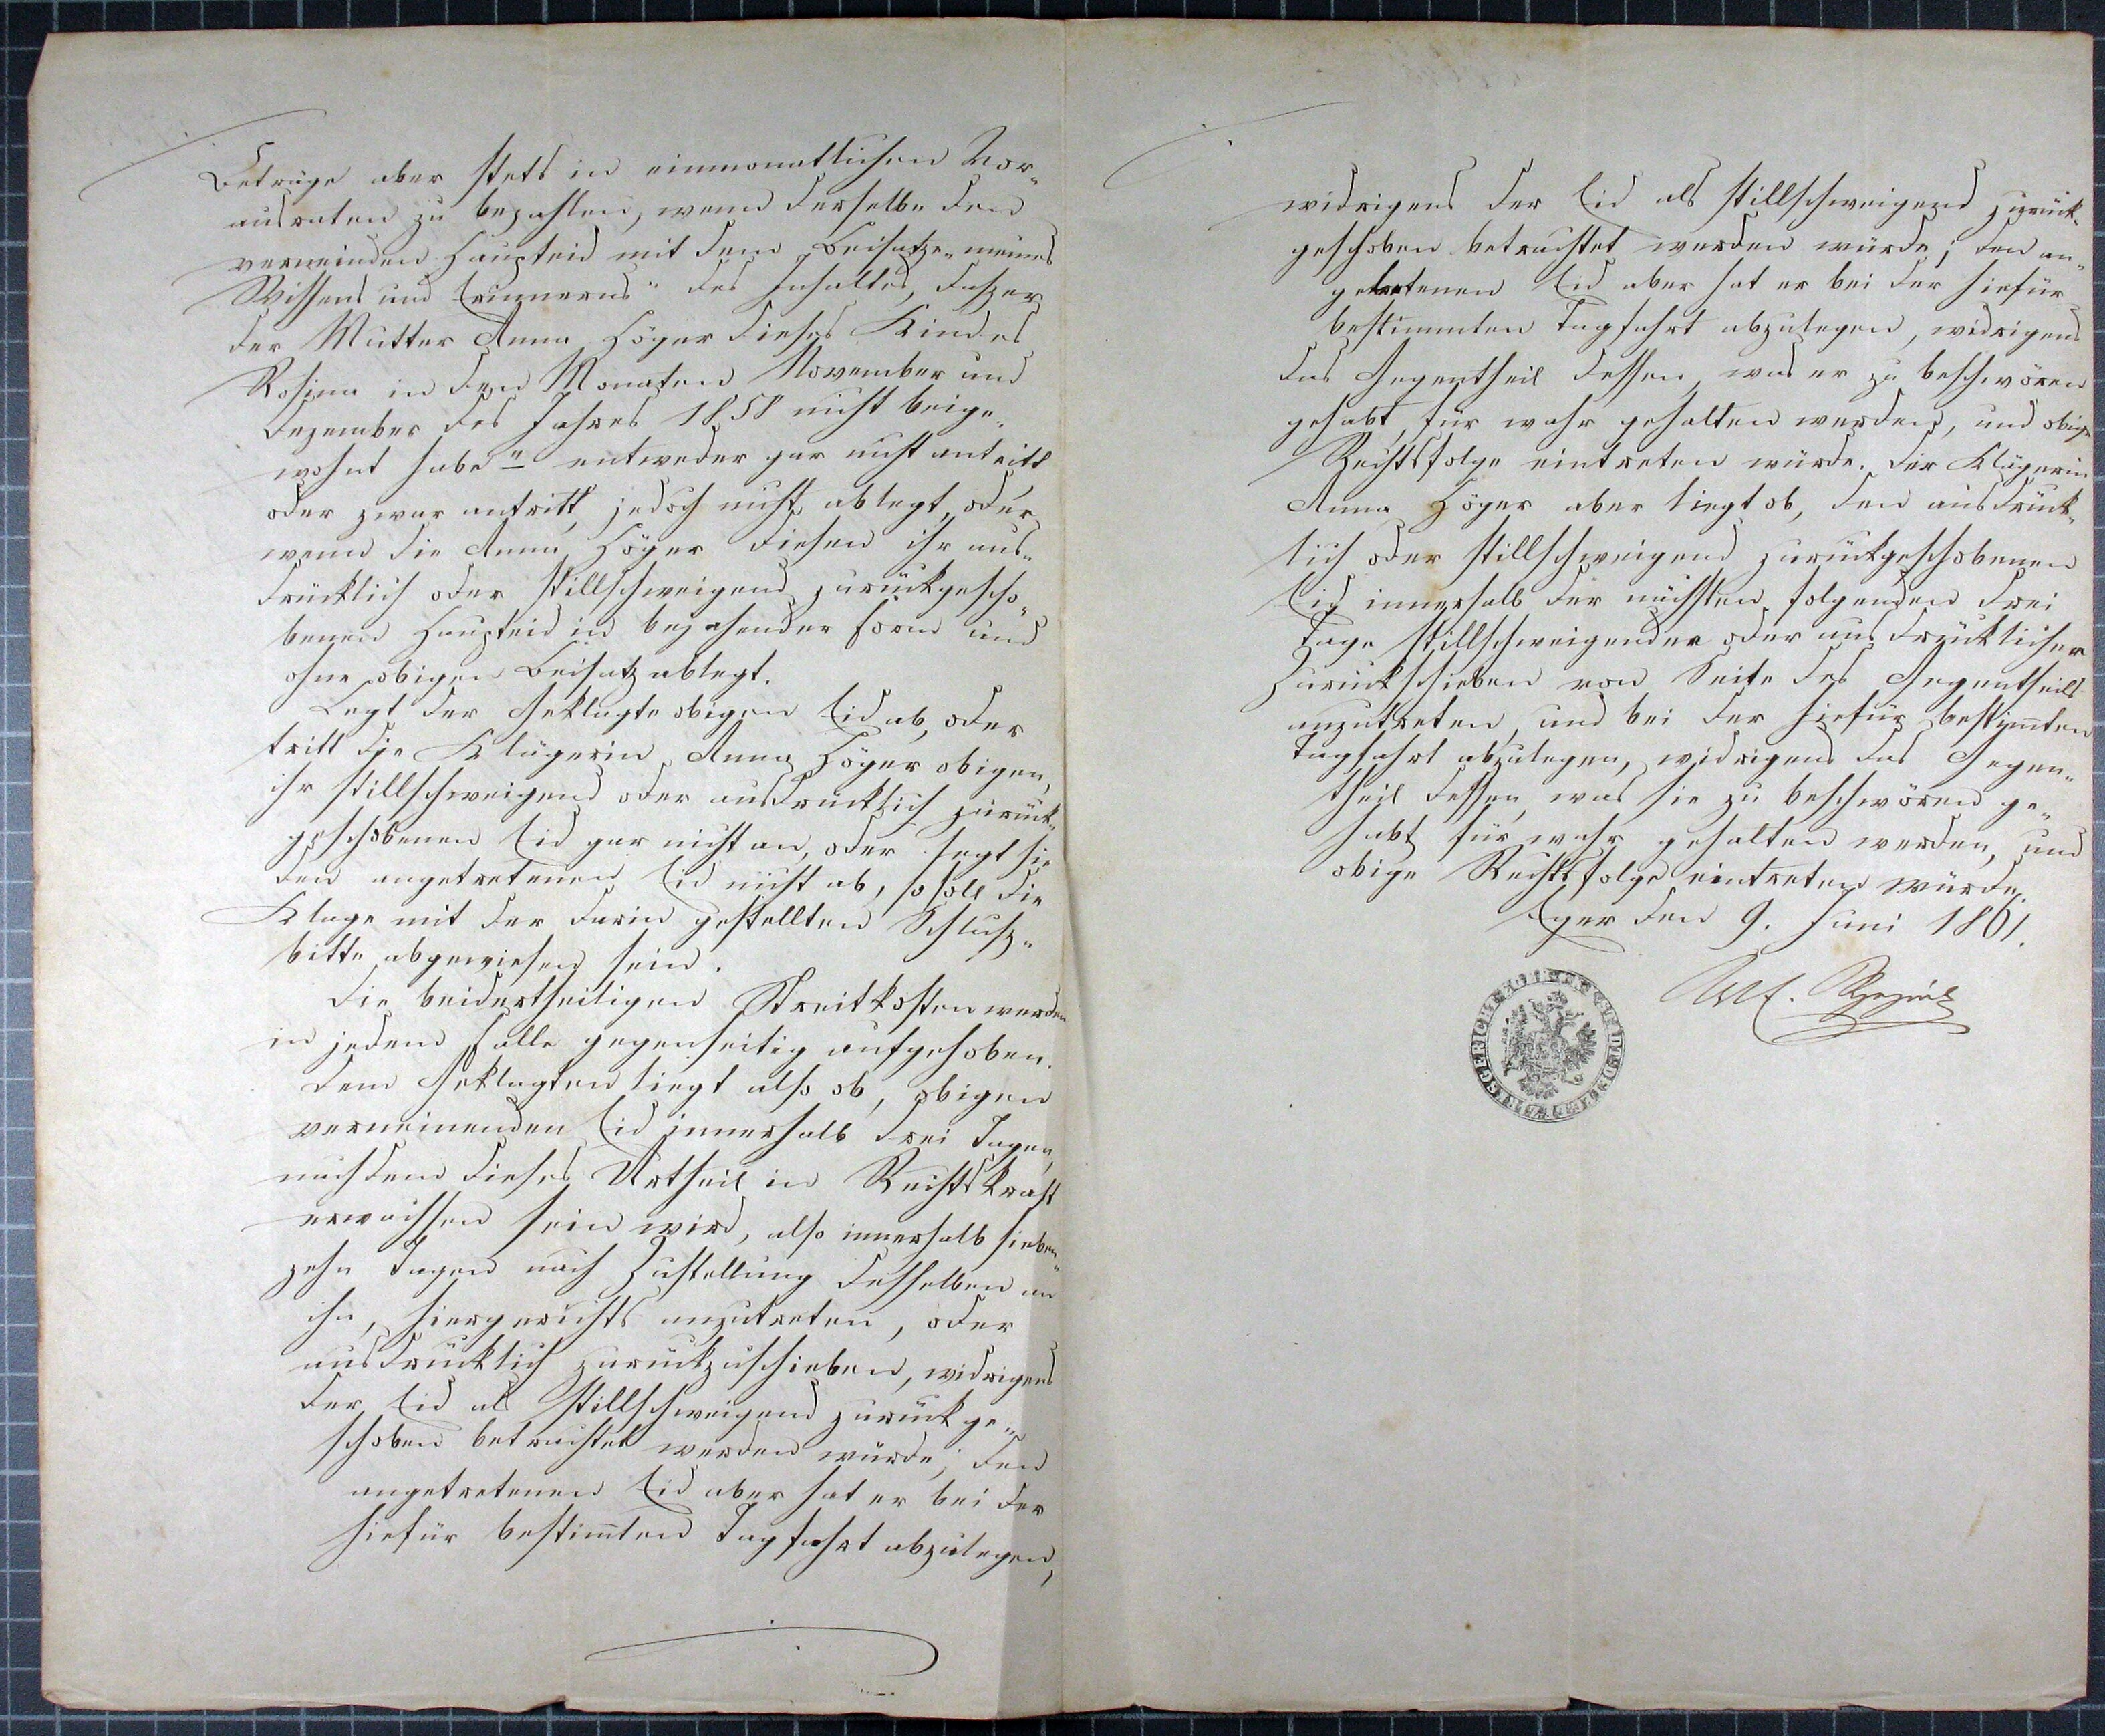 Beträge aber stets in einmonatlichen Vor-
ausraten zu bezahlen, wenn derselbe den
verneinden Haupteid mit dem Beisatze "meines
Wissens und Erinnerns" des Inhaltes, daß er
der Mutter Anna Höger dieses Kindes
Rosina in den Monaten November und
Dezember des Jahres 1858 nicht beige-
wohnt habe" entweder gar nicht antritt
oder zwar antritt, jedoch nicht ablegt, oder
wenn die Anna Höger diesen ihr aus-
drücklich oder stillschweigend zurückgescho-
benen Haupteid in bejahender Form und
ohne obigen Beisatz ablegt.
Legt der Geklagte obigen Eid ab, oder
tritt die Klägerin Anna Höger obigen,
ihr stillschweigend oder ausdrücklich zurück-
geschobenen Eid gar nicht an, oder legt sie
den angetretenen Eid nicht ab, so soll die
Klage mit der darin gestellten Schluß-
bitte abgewiesen sein.
Die beidertheiligen Streitkosten werden
in jedem Falle gegenseitig aufgehoben.
Dem Geklagten liegt also ob, obigen
verneinenden Eid innerhalb drei Tagen,
nachdem dieses Urtheil in Rechtskraft
erwachsen sein wird, also innerhalb sieben-
zehn Tagen nach Zustellung desselben an
ihn, hiergerichts anzutreten, oder
ausdrücklich zurückzuschieben, widrigens
der Eid als stillschweigend zurückge-
schoben betrachtet werden würde; den
angetretenen Eid aber hat er bei der
hiefür bestimten Tagfahrt abzulegen,
widrigens der Eid als stillschweigend zurück-
geschoben betrachtet werden würde; den an-
getretenen Eid aber hat er bei der hiefür
bestimmten Tagfahrt abzulegen, widrigens
das Gegentheil dessen, was er zu beschwören
gehabt, für wahr gehalten werden, und obige
Rechtsfolge eintreten würde. Der Klägerin
Anna Höger aber liegt ob, den ausdrück-
lich oder stillschweigend zurückgeschobenen
Eid innerhalb der nächsten folgenden drei
Tage stillschweigender oder ausdrücklicher
Zurückschieben von Seite des Gegentheils
anzutreten, und bei der hiefür bestimten
Tagfahrt abzulegen, widrigens das Gegen-
theil dessen, was sie zu beschwören ge-
habt für wahr gehalten werden, und
obige Rechtsfolge eintreten würde.
Eger den 9. Juni 1861.